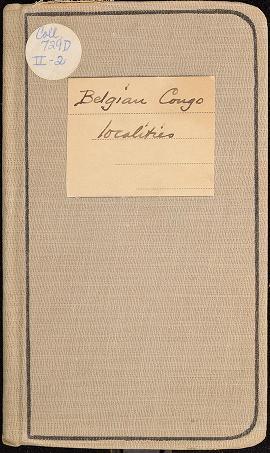 Coll
729D
II-2
Belgian Congo
localities